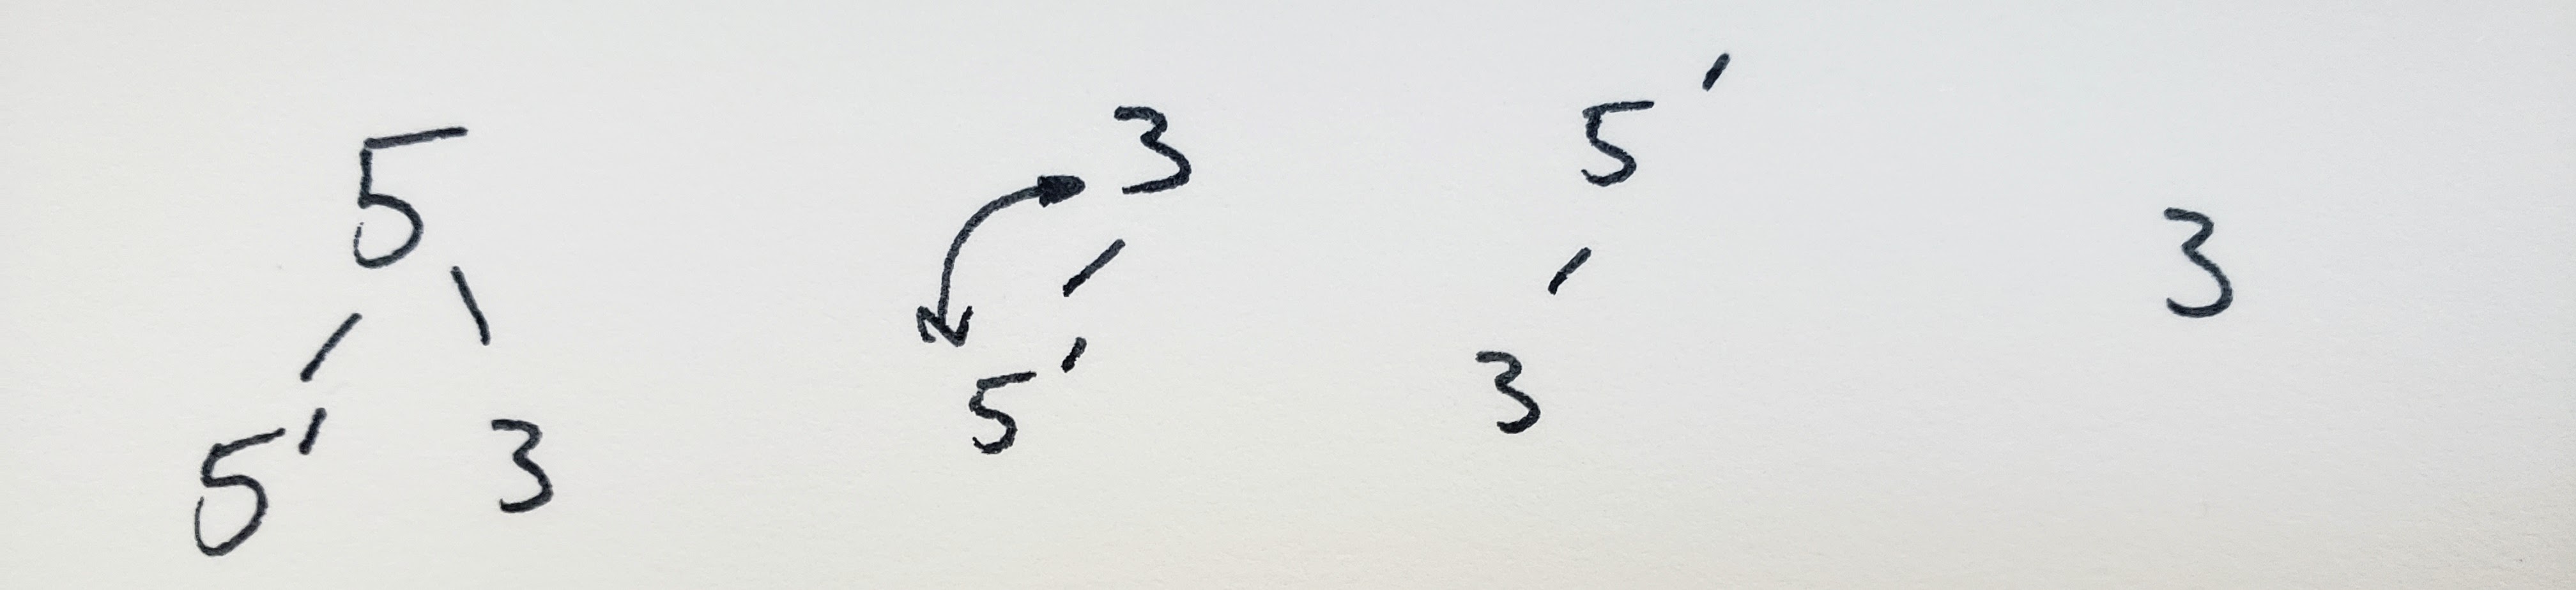 5
5' 3
3
5'
5'
3
3